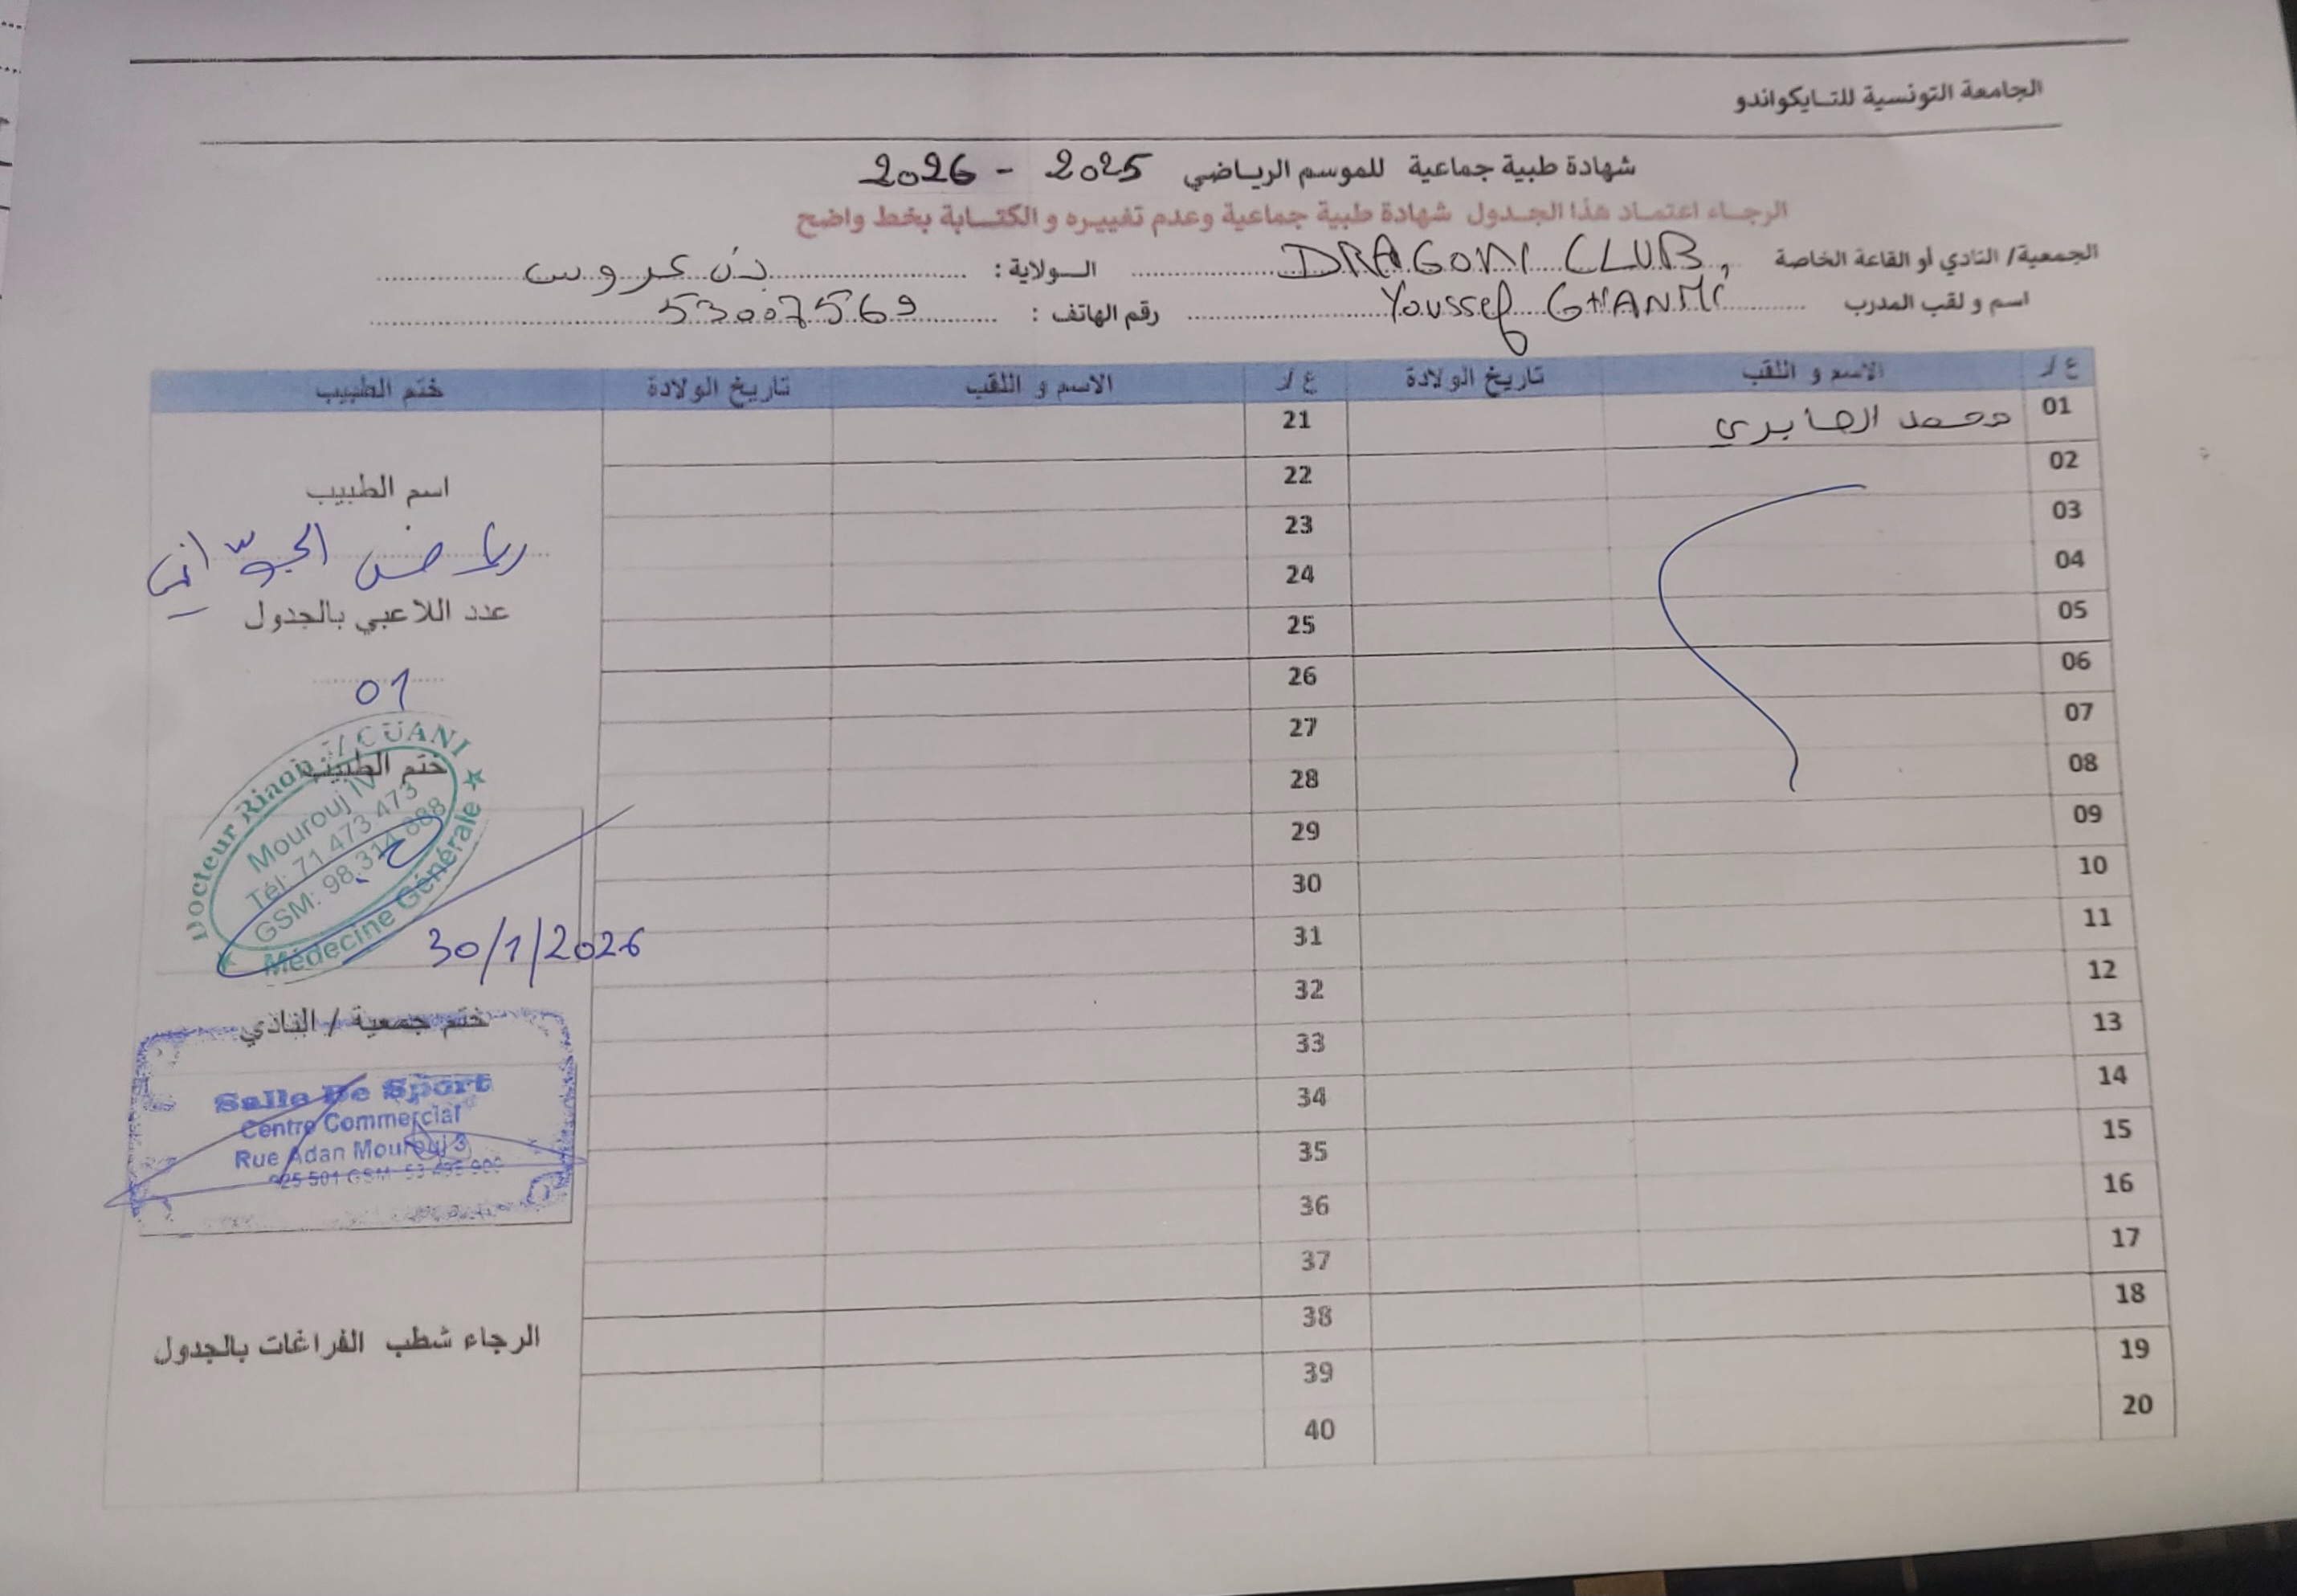 الجامعة التونسية للتايكواندو
شهادة طبية جماعية للموسم الرياضي 2025 - 2026
الرجاء اعتماد هذا الجدول شهادة طبية جماعية وعدم تغييره و الكتابة بخط واضح
الجمعية/ النادي أو القاعة الخاصة DRAGON CLUB الولاية : بن عروس
اسم و لقب المدرب Youssef GHANMI رقم الهاتف : 53007569
ع / الاسم و اللقب تاريخ الولادة ع / الاسم و اللقب تاريخ الولادة ختم الطبيب
01 محمد الصابري 21
02 22
03 23
04 24
05 25
06 26
07 27
08 28
09 29
10 30
11 31
12 32
13 33
14 34
15 35
16 36
17 37
18 38
19 39
20 40
اسم الطبيب
رياض الجوّاني
عدد اللاعبي بالجدول
01
ختم الطبيب
Docteur Riadh
Mourouj IV
Tél: 71 473 473
GSM: 98.314 888
Médecine Générale
30/1/2026
ختم جمعية / النادي
Salle De Sport
Centre Commercial
Rue Adan Mourouj 3
501 GSM
الرجاء شطب الفراغات بالجدول